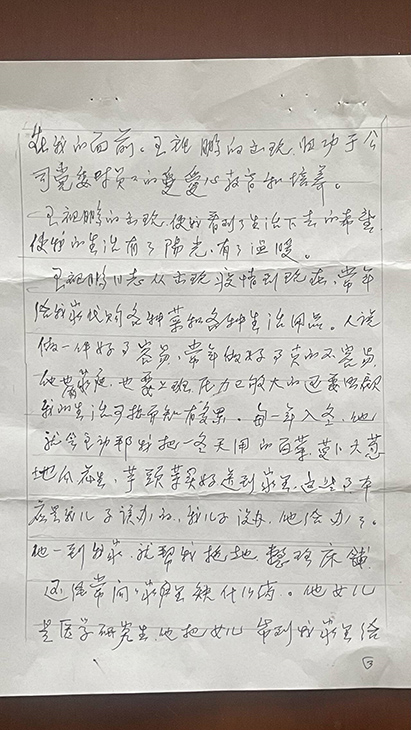 在我的面前。王祖鹏的出现,归功于公
司党委对员工的爱心教育和培养。
王祖鹏的出现,使我看到了生活下去的希望
使我的生活有了陽光,有了温暖。
王祖鹏同志从出现疫情到现在,常年
给我家代购各种菜和各种生活用品。人说
做一件好事容易,常年做好事真的不容易,
他有家庭,也要上班,压力已够大的还要照顾
我的生活可想而知有多累。每一年入冬,他
就会主动帮我把一冬天用的白菜萝卜大葱
地瓜 芋頭等买好送到家里,这些事本
应是我儿子该办的,我儿子没办,他给办了。
他一到我家,就帮我拖地,整理床铺
还经常问家里缺什么药。他女儿
是医学研究生,他把女儿带到我家里给
3